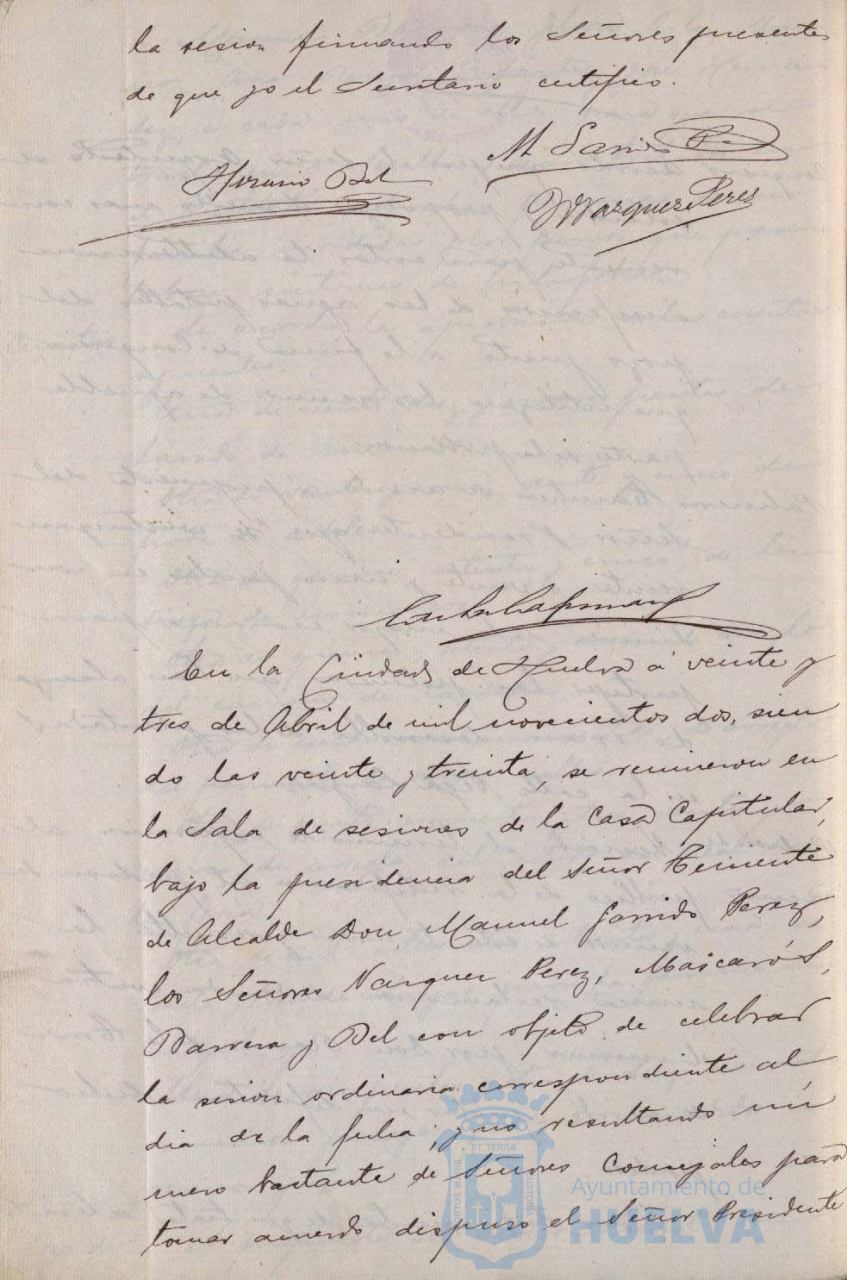 la sesion firmando los Señores presentes
de que yo el Secretario certifico.
M Garrido P
Horacio Bel
Vazquez Perez
En la Ciudad de Huelva á veinte y
tres de Abril de mil novecientos dos, sien
do las veinte y treinta, se reunieron en
la Sala de sesiones de la Casa Capitular,
bajo la presidencia del Señor Teniente
de Alcalde Don Manuel Garrido Perez,
los Señores Vazquez Perez, Mascarós,
Barrera y Bel con objeto de celebrar
la sesion ordinaria correspondiente al
dia de la fecha; y no resultando nú
mero bastante de Señores Concejales para
tomar acuerdo dispuso el Señor Presidente
Ayuntamiento de
HUELVA